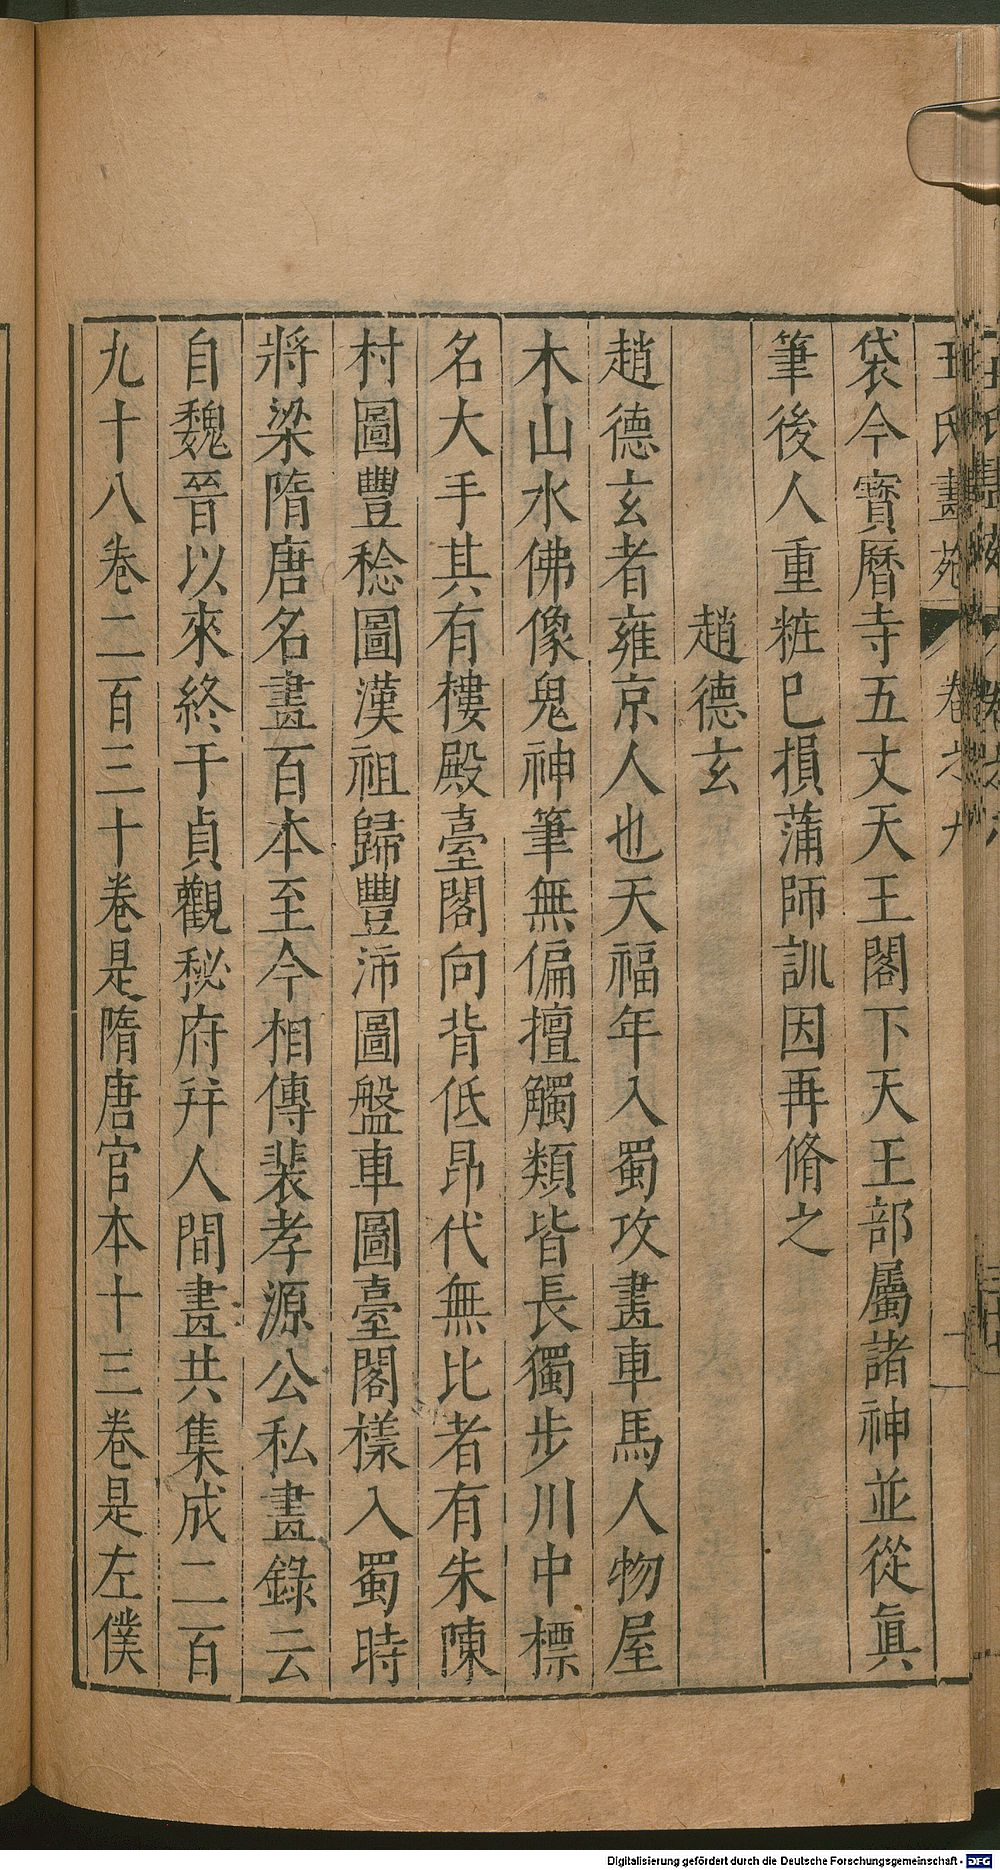 王氏畫苑 卷之九
袋今寳曆寺五丈天王閣下天王部屬諸神並從眞
筆後人重粧已損蒲師訓因再脩之
趙德玄
趙德玄者雍京人也天福年入蜀攻畫車馬人物屋
木山水佛像鬼神筆無偏擅觸類皆長獨步川中標
名大手其有樓殿臺閣向背低昂代無比者有朱陳
村圖豐稔圖漢祖歸豐沛圖盤車圖臺閣樣入蜀時
將梁隋唐名畫百本至今相傳裴孝源公私畫錄云
自魏晉以來終于貞觀秘府幷人間畫共集成二百
九十八卷二百三十卷是隋唐官本十三卷是左僕
Digitalisierung gefördert durch die Deutsche Forschungsgemeinschaft - DFG